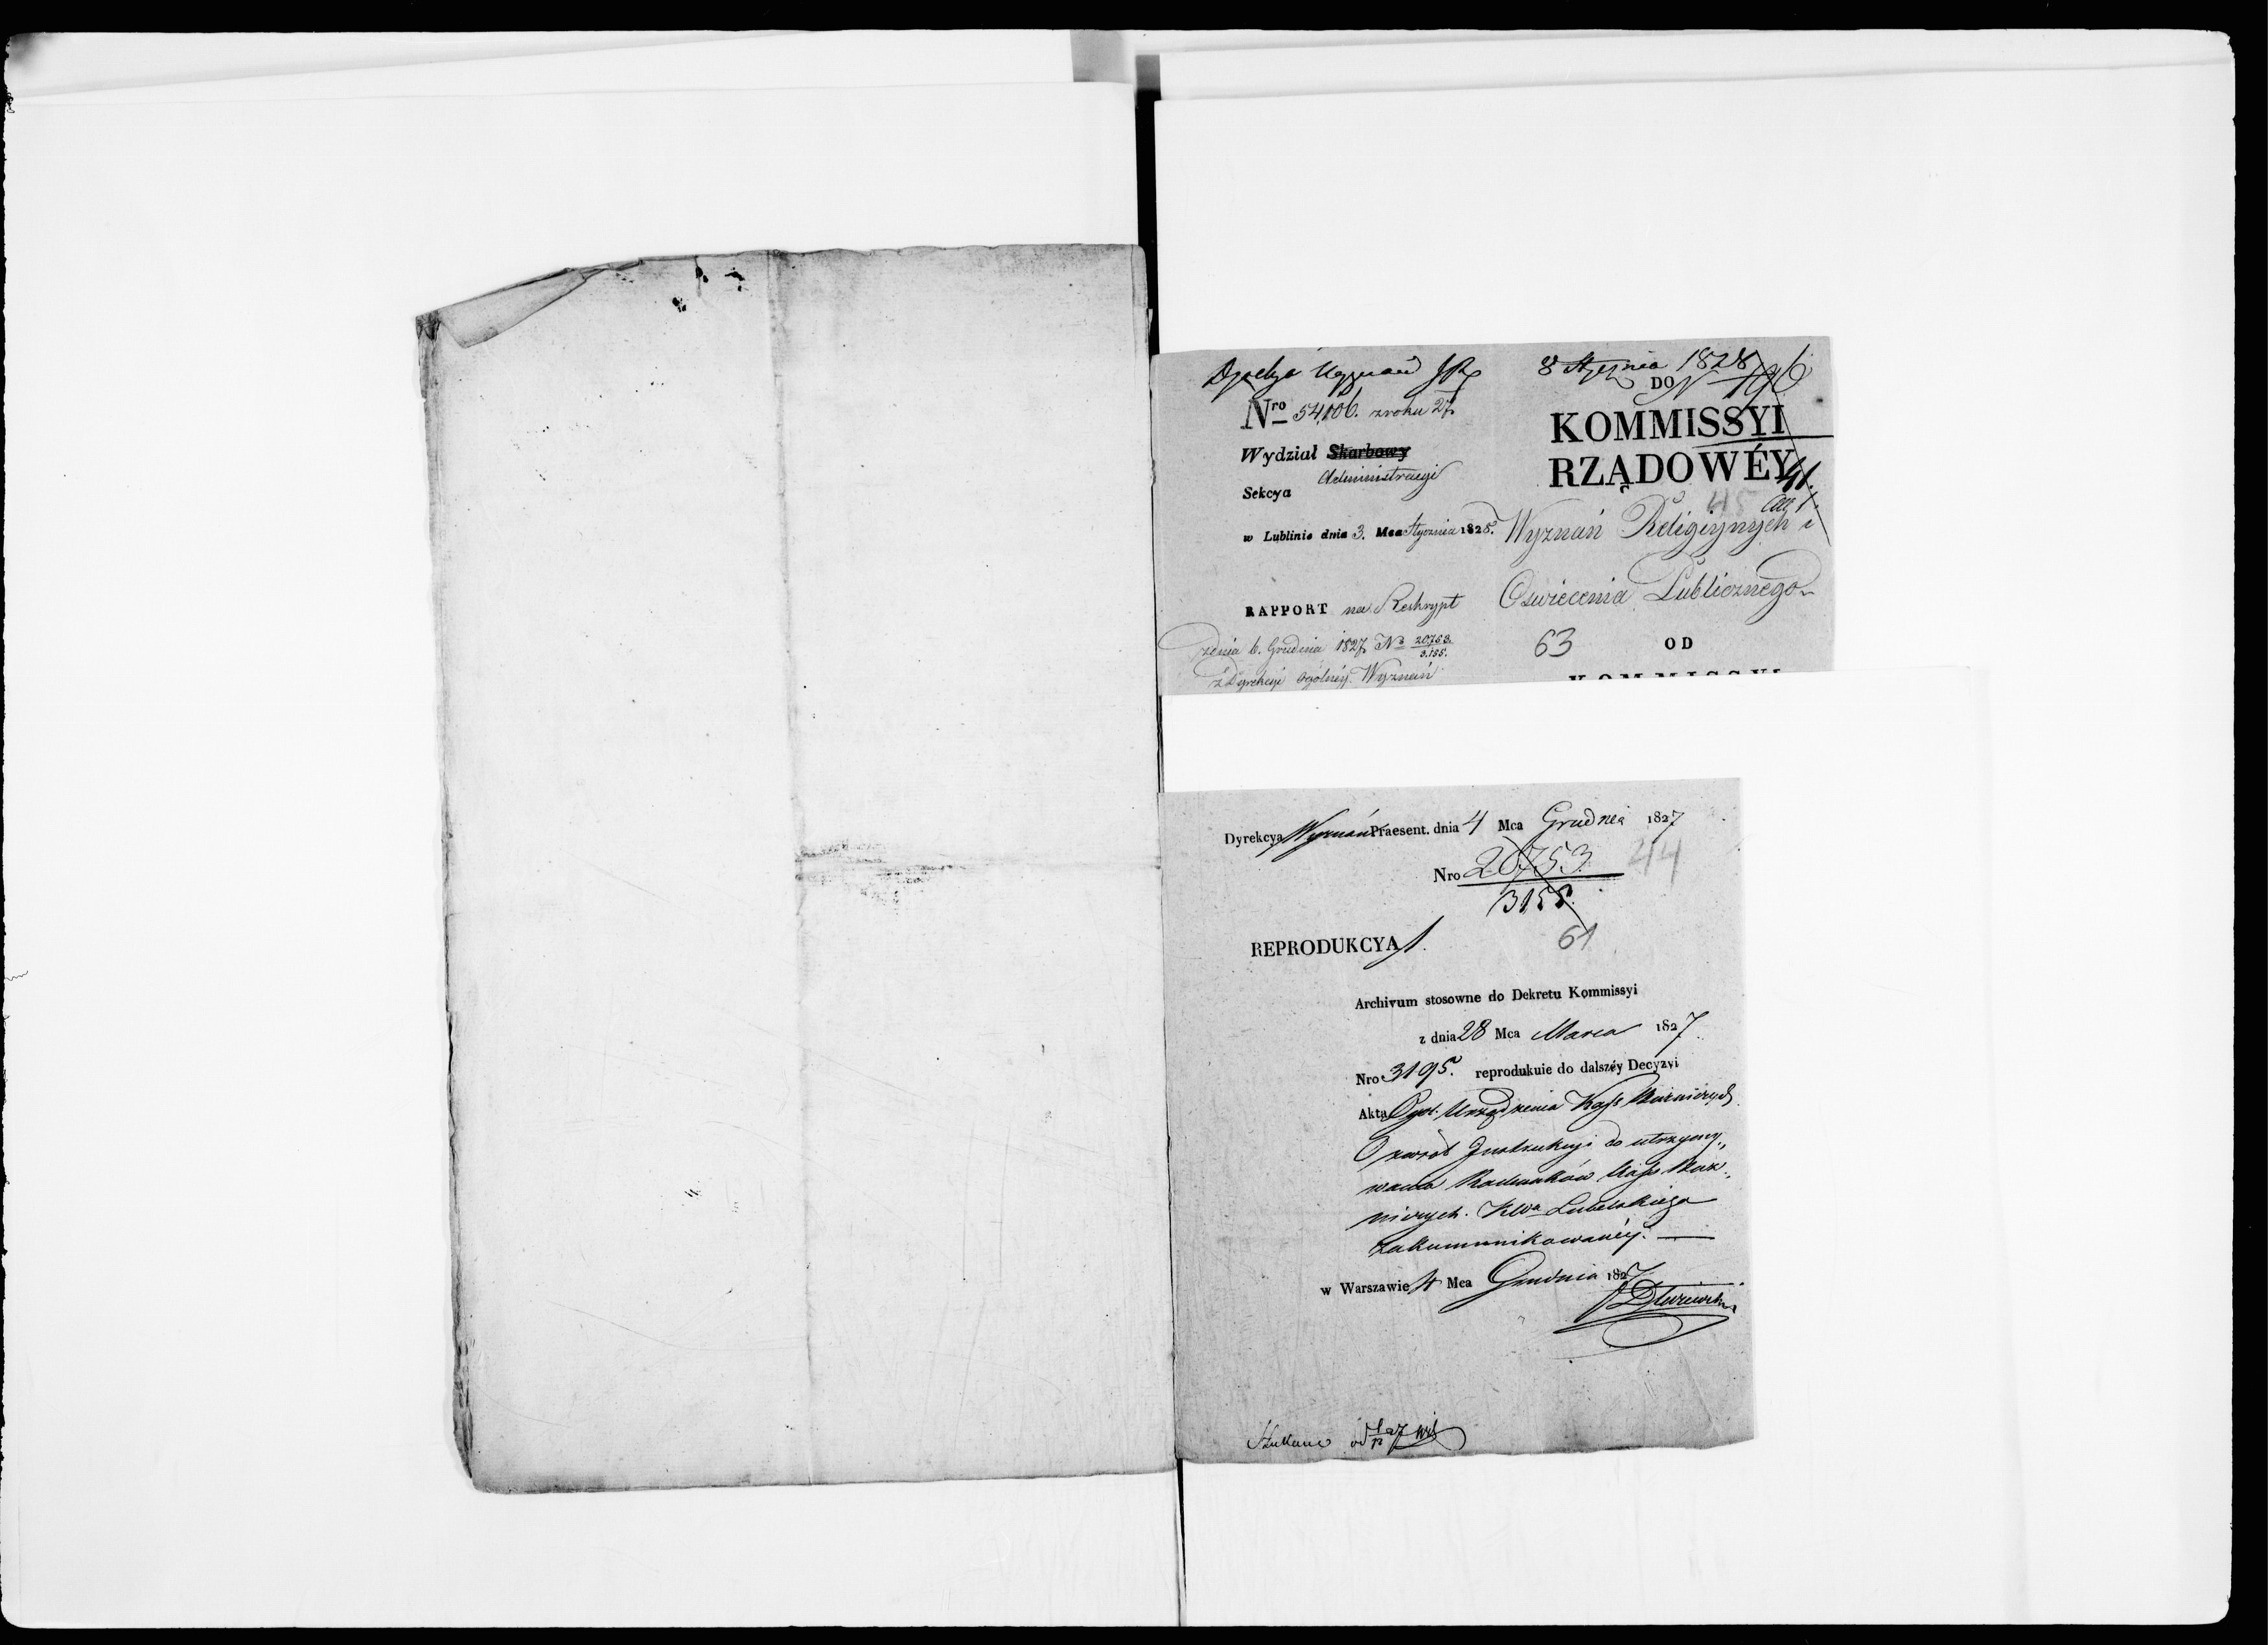 Dyrekcya Wyznań
Nro 54,106. z roku 27
Wydział Skarbowy
Administracyi
Sekcya
w Lublinie dnia 3. Mca Stycznia 1828.
RAPPORT na Reskrypt
z dnia 6. Grudnia 1827 No 20753.
3.155.
z Dyrekcyi Ogólnéy Wyznań
8 Stycznia 1828
DO N 196
KOMMISSYI
RZĄDOWÉY
41.
45
Wyznań Religiynych i
Oswiecenia Publicznego
63 OD
KOMMISSYI
Dyrekcya Wyznań Praesent. dnia 4 Mca Grudnia 1827
Nro 20753. 44
3155.
61
REPRODUKCYA 1.
Archivum stosowne do Dekretu Kommissyi
z dnia 28 Mca Marca 1827.
Nro 3195. reprodukuie do dalszéy Decyzyi
Akta Ogol. Urządzenia Kass
zwrot Instrukcyi do utrzymy„
wania Rachunków Kass
Lubelskiego
zakommunikowanéy. —
w Warszawie 4 Mca Grudnia 1827
Szukane od